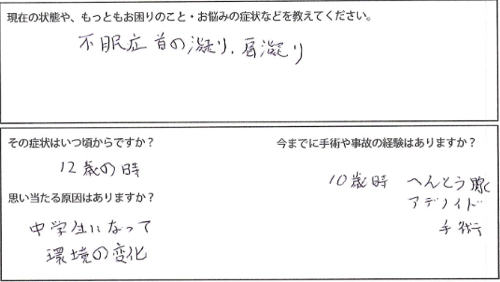 現在の状態や、もっともお困りのこと・お悩みの症状などを教えてください。
不眠症 首の凝り、肩凝り
その症状はいつ頃からですか?
12歳の時
思い当たる原因はありますか?
中学生になって
環境の変化
今までに手術や事故の経験はありますか?
10歳時 へんとう腺
アデノイド
手術